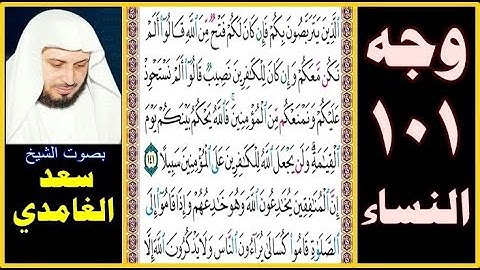 وجه
١٠١
النساء
ٱلَّذِينَ يَتَرَبَّصُونَ بِكُمْ فَإِن كَانَ لَكُمْ فَتْحٌ مِّنَ ٱللَّهِ قَالُوٓا۟ أَلَمْ
نَكُن مَّعَكُمْ وَإِن كَانَ لِلْكَٰفِرِينَ نَصِيبٌ قَالُوٓا۟ أَلَمْ نَسْتَحْوِذْ
عَلَيْكُمْ وَنَمْنَعْكُم مِّنَ ٱلْمُؤْمِنِينَ ۚ فَٱللَّهُ يَحْكُمُ بَيْنَكُمْ يَوْمَ
ٱلْقِيَٰمَةِ ۗ وَلَن يَجْعَلَ ٱللَّهُ لِلْكَٰفِرِينَ عَلَى ٱلْمُؤْمِنِينَ سَبِيلًا ١٤١
إِنَّ ٱلْمُنَٰفِقِينَ يُخَٰدِعُونَ ٱللَّهَ وَهُوَ خَٰدِعُهُمْ وَإِذَا قَامُوٓا۟ إِلَى
ٱلصَّلَوٰةِ قَامُوا۟ كُسَالَىٰ يُرَآءُونَ ٱلنَّاسَ وَلَا يَذْكُرُونَ ٱللَّهَ إِلَّا
بصوت الشيخ
سعد
الغامدي